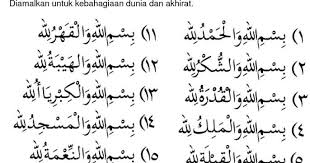 Diamalkan untuk kebahagiaan dunia dan akhirat.
١) بِسْمِ اللهِ وَالْحَمْدُ لِلّٰهِ
٢) بِسْمِ اللهِ وَالشُّكْرُ لِلّٰهِ
٣) بِسْمِ اللهِ وَالْقُدْرَةُ لِلّٰهِ
٤) بِسْمِ اللهِ وَالْمُلْكُ لِلّٰهِ
٥) بِسْمِ اللهِ
١١) بِسْمِ اللهِ وَالْقَهْرُ لِلّٰهِ
١٢) بِسْمِ اللهِ وَالْهَيْبَةُ لِلّٰهِ
١٣) بِسْمِ اللهِ وَالْكِبْرِيَاءُ لِلّٰهِ
١٤) بِسْمِ اللهِ وَالْمَسْجِدُ لِلّٰهِ
١٥) بِسْمِ اللهِ وَالنِّعْمَةُ لِلّٰهِ